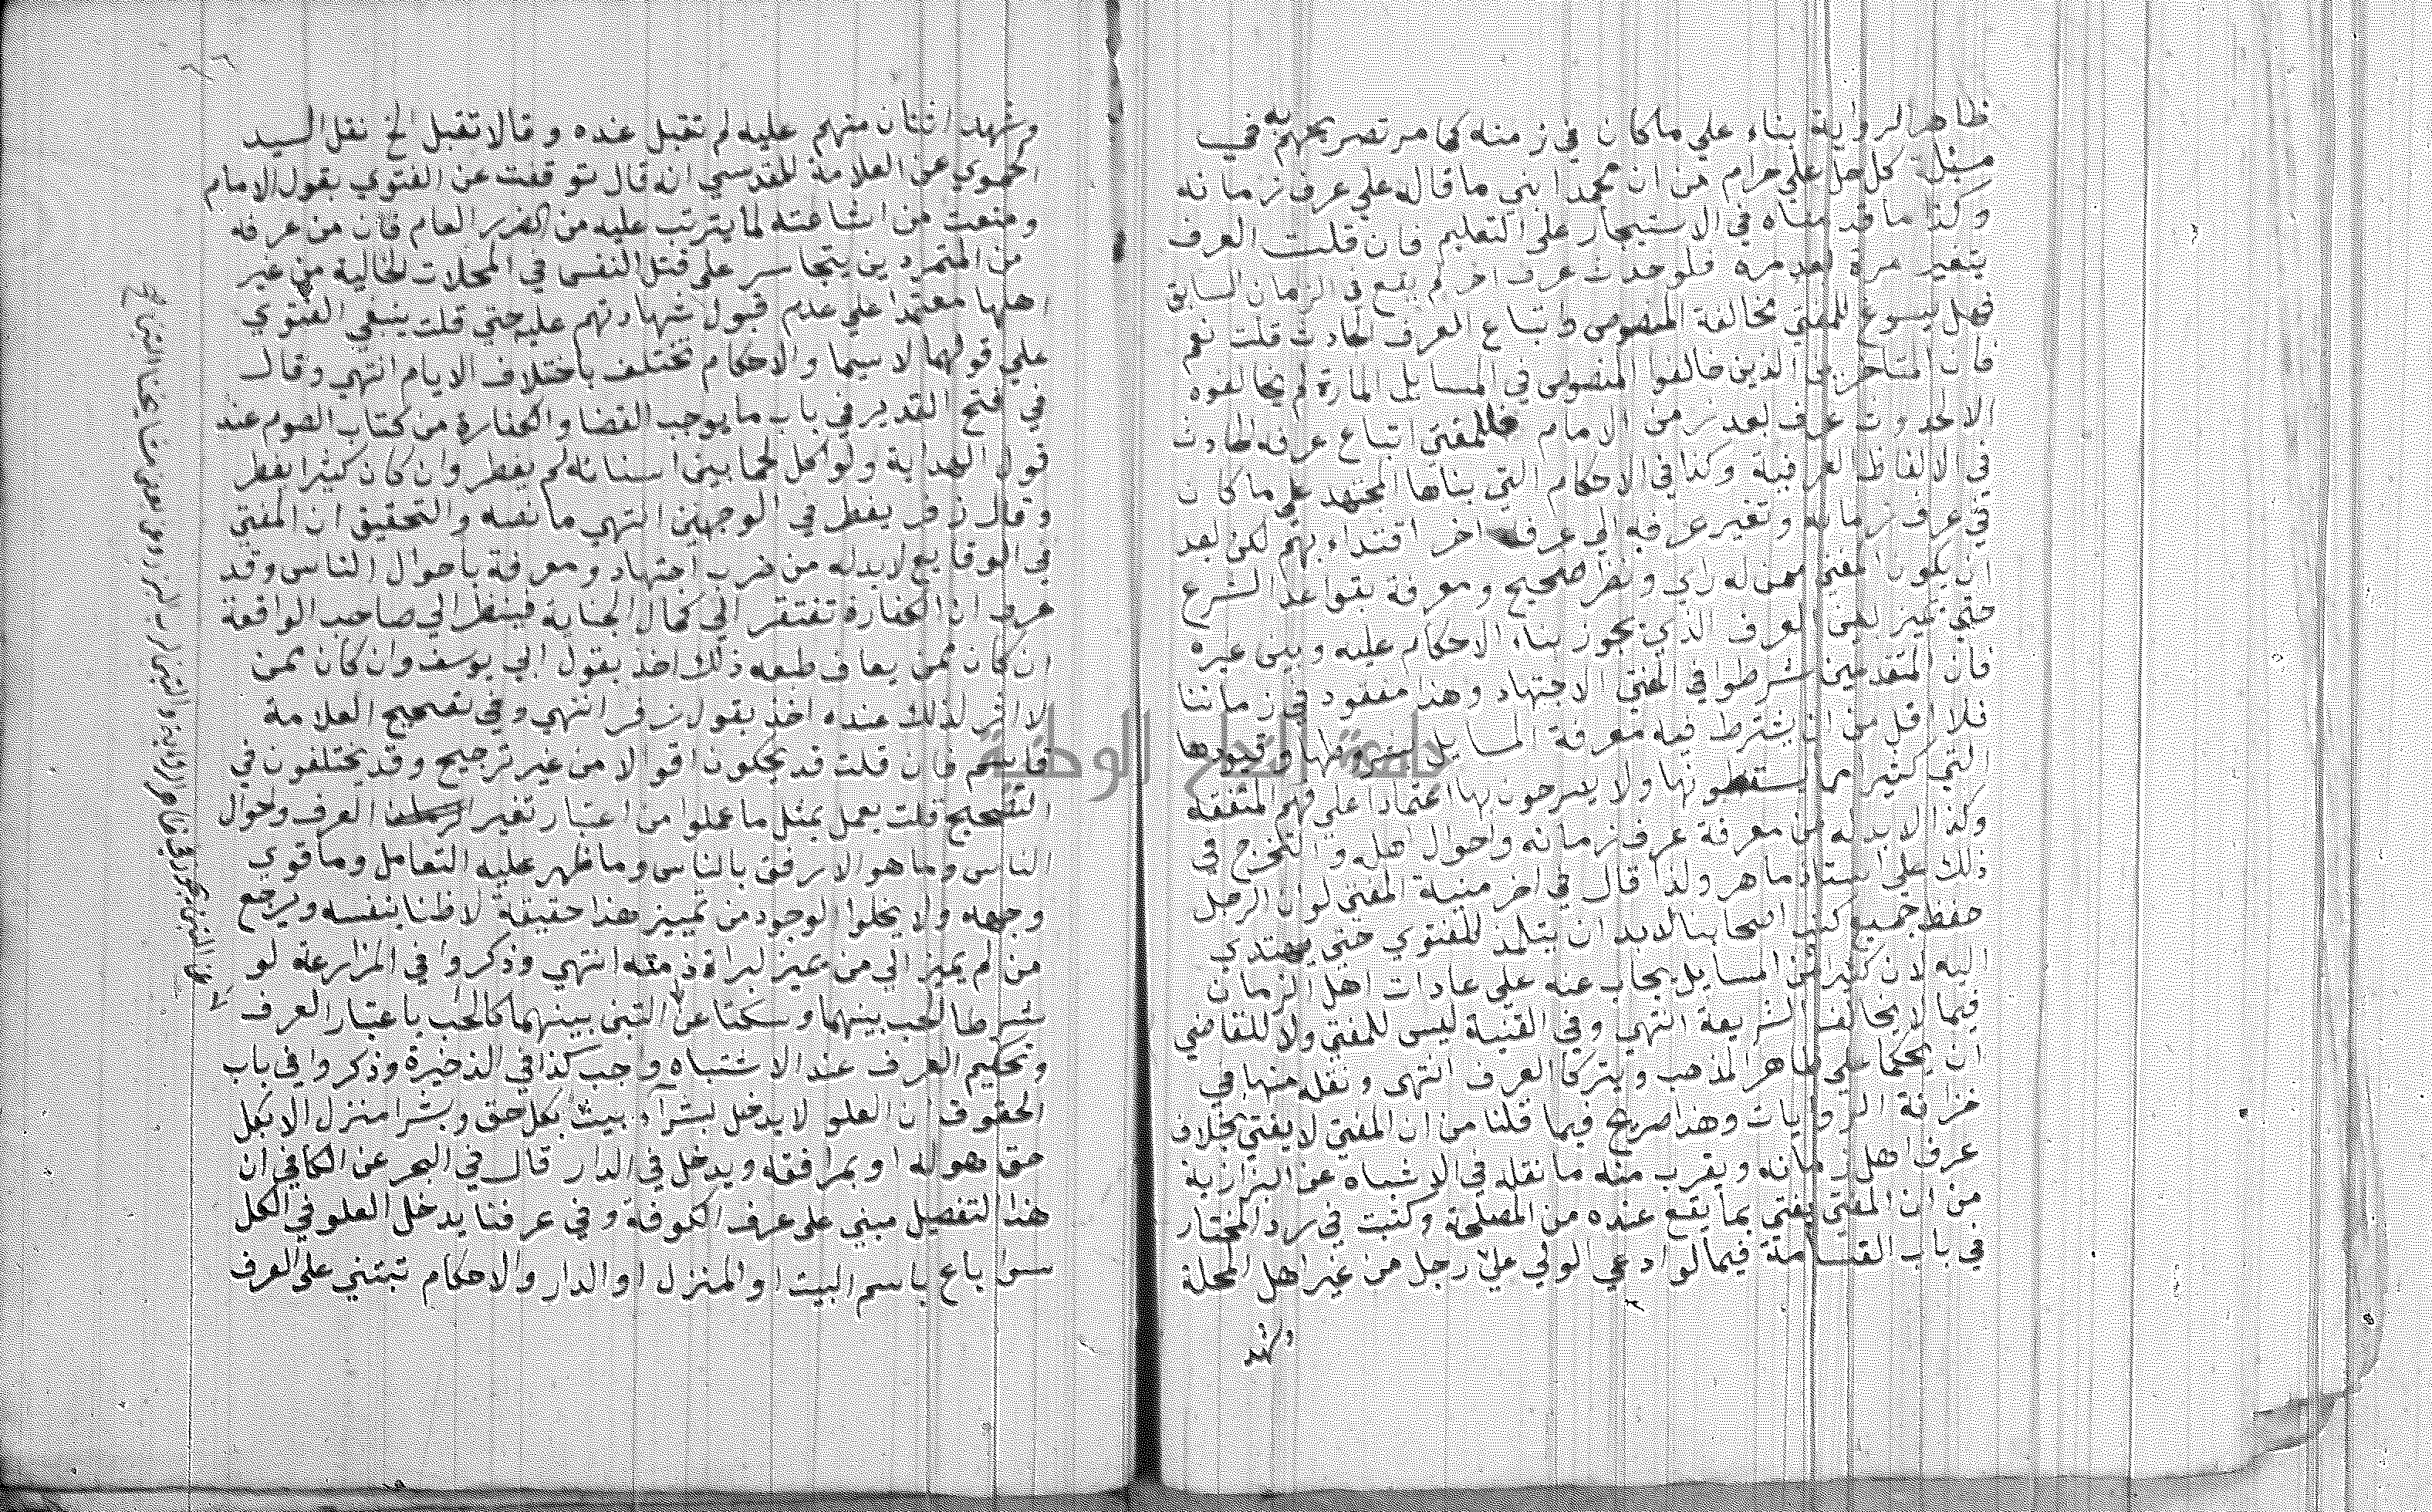 ظاهر الرواية بناء علي ما كان في زمنه كما مر تصريحهم به في
مسئلة كل حل علي حرام من ان محمدا بني ما قاله علي عرف زمانه
وكذا ما قدمناه في الاستيجار علي التعليم فان قلت العرف
يتغير مرة بعد مره فلو حدث عرف اخر لم يقع في الزمان السابق
فهل يسوغ للمفتي مخالفة المنصوص واتباع العرف الحادث قلت نعم
فان المتاخرين الذين خالفوا المنصوص في المسايل المارة لم يخالفوه
الا لحدوث عرف بعد زمن الامام فللمفتي اتباع عرفه الحادث
في الالفاظ العرفية وكذا في الاحكام التي بناها المجتهد علي ما كان
في عرف زمانه وتغير عرفه الي عرف اخر اقتداء بهم لكن بعد
ان يكون المفتي ممن له راي ونظر صحيح ومعرفة بقواعد الشرع
حتي يميز بين العرف الذي يجوز بناء الاحكام عليه وبين غيره
فان المتقدمين شرطوا في المفتي الاجتهاد وهذا مفقود في زماننا
فلا اقل من ان يشترط فيه معرفة المسايل بشروطها وقيودها
التي كثيرا ما يسقطونها ولا يصرحون بها اعتمادا علي فهم المتفقه
وكذا لا بد له من معرفة عرف زمانه واحوال اهله والتخرج في
ذلك علي استاذ ماهر ولذا قال في اخر منية المفتي لو ان الرجل
حفظ جميع كتب اصحابنا لابد ان يتلمذ للفتوي حتي يهتدي
اليه لان كثير من المسايل يجاب عنه علي عادات اهل الزمان
فيما لا يخالف الشريعة انتهي وفي القنية ليس للمفتي ولا للقاضي
ان يحكما علي ظاهر المذهب ويتركا العرف انتهي ونقله منها في
خزانة الروايات وهذا صريح فيما قلنا من ان المفتي لا يفتي بخلاف
عرف اهل زمانه ويقرب منه ما نقله في الاشباه عن البزازية
من ان المفتي يفتي بما يقع عنده من المصلحة وكتبت في رد المحتار
في باب القسامة فيما لو ادعي الولي علي رجل من غير اهل المحلة
وشهد
وشهد اثنان منهم عليه لم تقبل عنده وقالا تقبل الخ نقل السيد
الحموي عن العلامة المقدسي انه قال توقفت عن الفتوي بقول الامام
ومنعت من اشاعته لما يترتب عليه من الضرر العام فان من عرفه
من المتمردين يتجاسر علي قتل النفس في المحلات الخالية من غير
اهلها معتمدا علي عدم قبول شهادتهم عليه حتي قلت ينبغي الفتوي
علي قولهما لا سيما والاحكام تختلف باختلاف الايام انتهي وقال
في فتح القدير في باب ما يوجب القضا والكفارة من كتاب الصوم عند
قول الهداية ولو اكل لحما بين اسنانه لم يفطر وان كان كثيرا يفطر
وقال زفر يفطر في الوجهين انتهي ما نصه والتحقيق ان المفتي
في الوقايع لا بد له من ضرب اجتهاد ومعرفة باحوال الناس وقد
عرف ان الكفارة تفتقر الي كمال الجناية فينظر الي صاحب الواقعة
ان كان ممن يعاف طبعه ذلك اخذ بقول ابي يوسف وان كان ممن
لا اثر لذلك عنده اخذ بقول زفر انتهي وفي تصحيح العلامة
قاسم فان قلت قد يحكون اقوالا من غير ترجيح وقد يختلفون في
التصحيح قلت يعمل بمثل ما عملوا من اعتبار تغير العرف واحوال
الناس وما هو الارفق بالناس وما ظهر عليه التعامل وما قوي
وجهه ولا يخلوا الوجود من تمييز هذا حقيقة لا ظنا بنفسه ويرجع
من لم يميز الي من يميز لبراة ذمته انتهي وذكروا في المزارعة لو
شرطا الحب بينهما وسكتا عن التبن بينهما كالحب باعتبار العرف
وتحكيم العرف عند الاشتباه واجب كذا في الذخيرة وذكروا في باب
الحقوق ان العلو لا يدخل بشرآء بيت بكل حق وبشرا منزل الا بكل
حق هو له او بمرافقه ويدخل في الدار قال في البحر عن الكافي ان
هذا التفصيل مبني علي عرف الكوفة وفي عرفنا يدخل العلو في الكل
سوا باع باسم البيت او المنزل او الدار والاحكام تبتني علي العرف
جامعة النجاح الوطنية